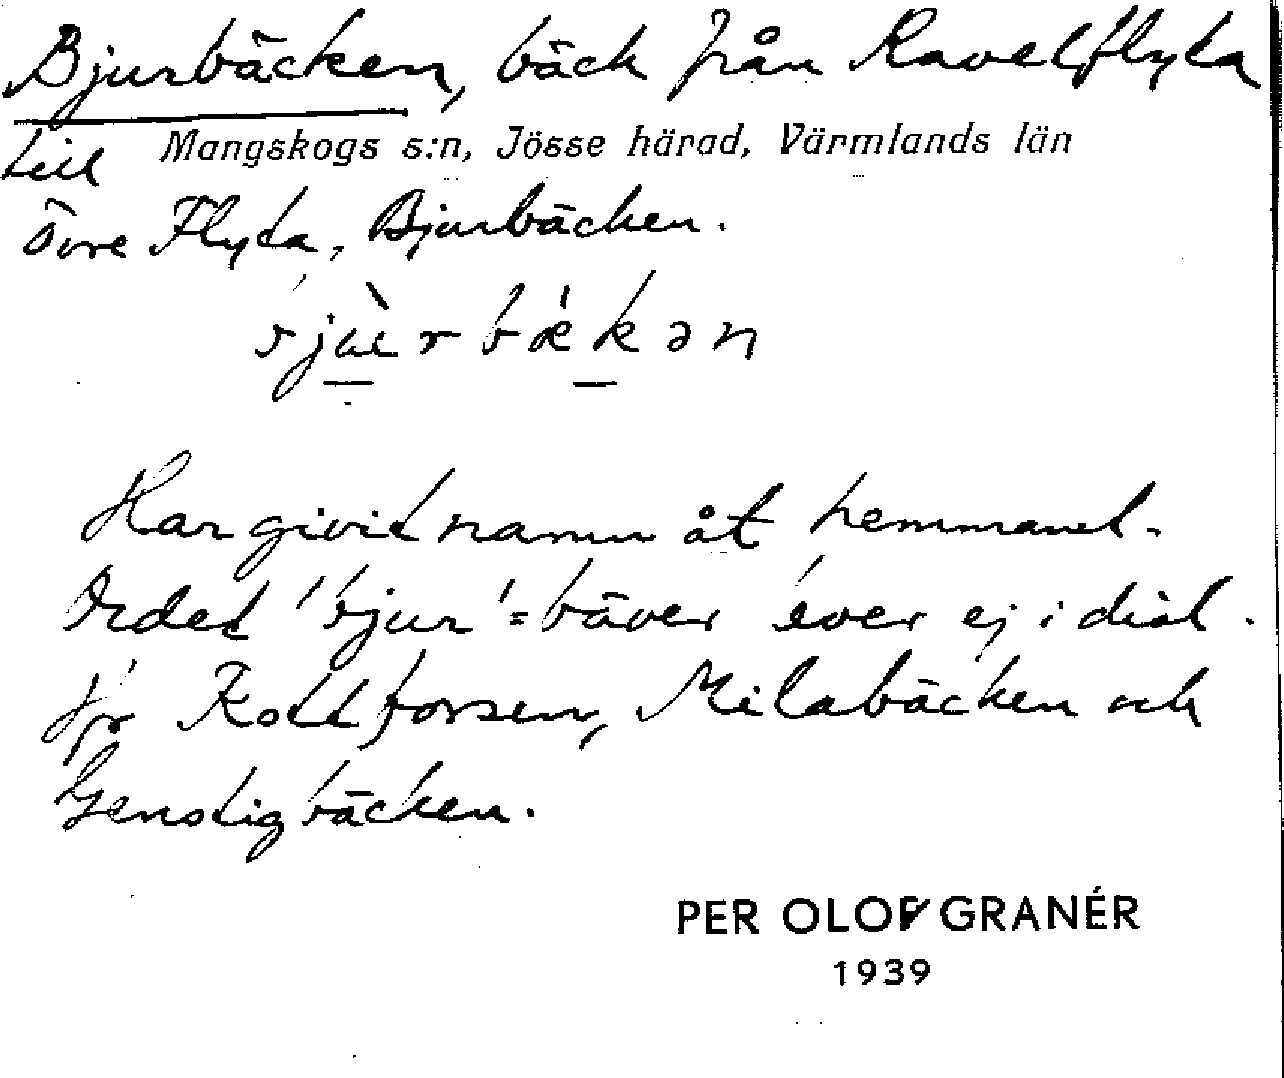 Bjurbäcken, bäck från Ravelflyta
till Mangskogs s:n, Jösse härad, Värmlands län
Övre Flyta, Bjurbäcken.
Har givit namn åt hemmanet.
Ordet 'bjur' = bäver lever ej i dial.
Jfr Kottforsen, Milabäcken och
Genstigbäcken.
PER OLOF GRANÉR
1939